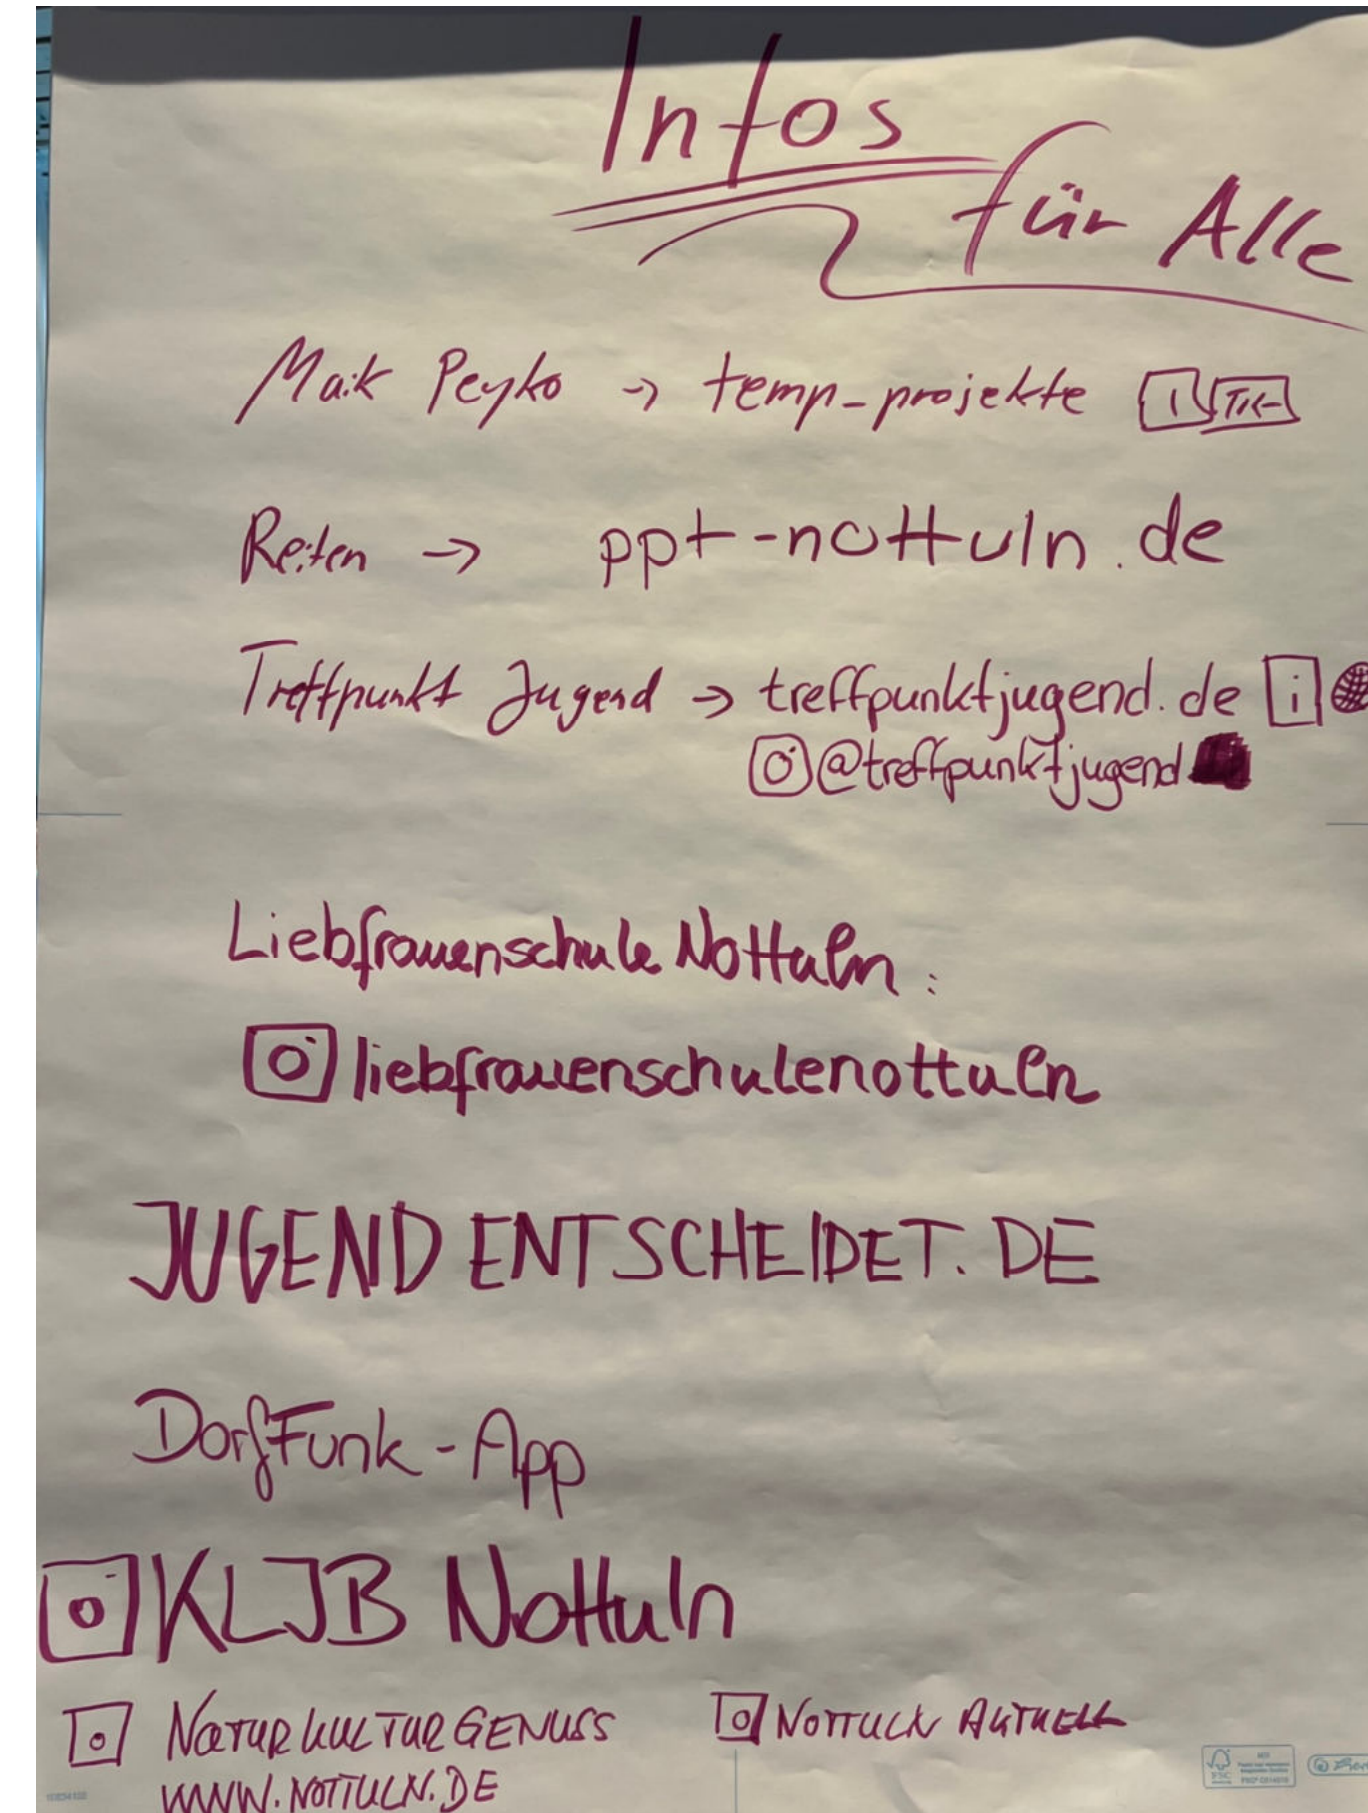 Infos
für Alle
Maik Peyko → temp_projekte
Reiten → ppt-nottuln.de
Treffpunkt Jugend → treffpunktjugend.de i
@treffpunktjugend
Liebfrauenschule Nottuln:
liebfrauenschulenottuln
JUGENDENTSCHEIDET.DE
DorfFunk-App
KLJB Nottuln
NATURKULTURGENUSS
NOTTULN AKTUELL
WWW.NOTTULN.DE
FSC